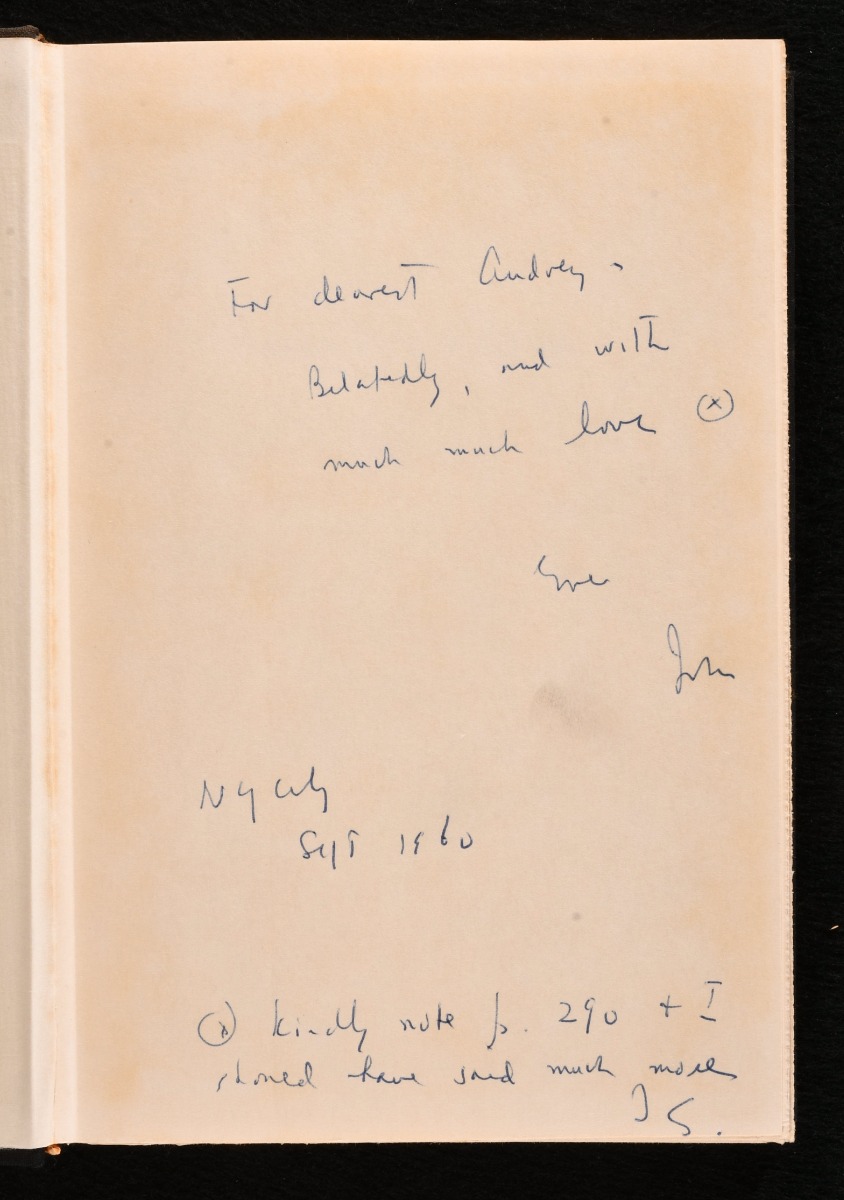 For dearest Audrey -
Belatedly, and with
much much love ⓧ
Ever
John
NY City
Sept 1960
ⓧ kindly note p. 290 + I
should have said much more
J G.